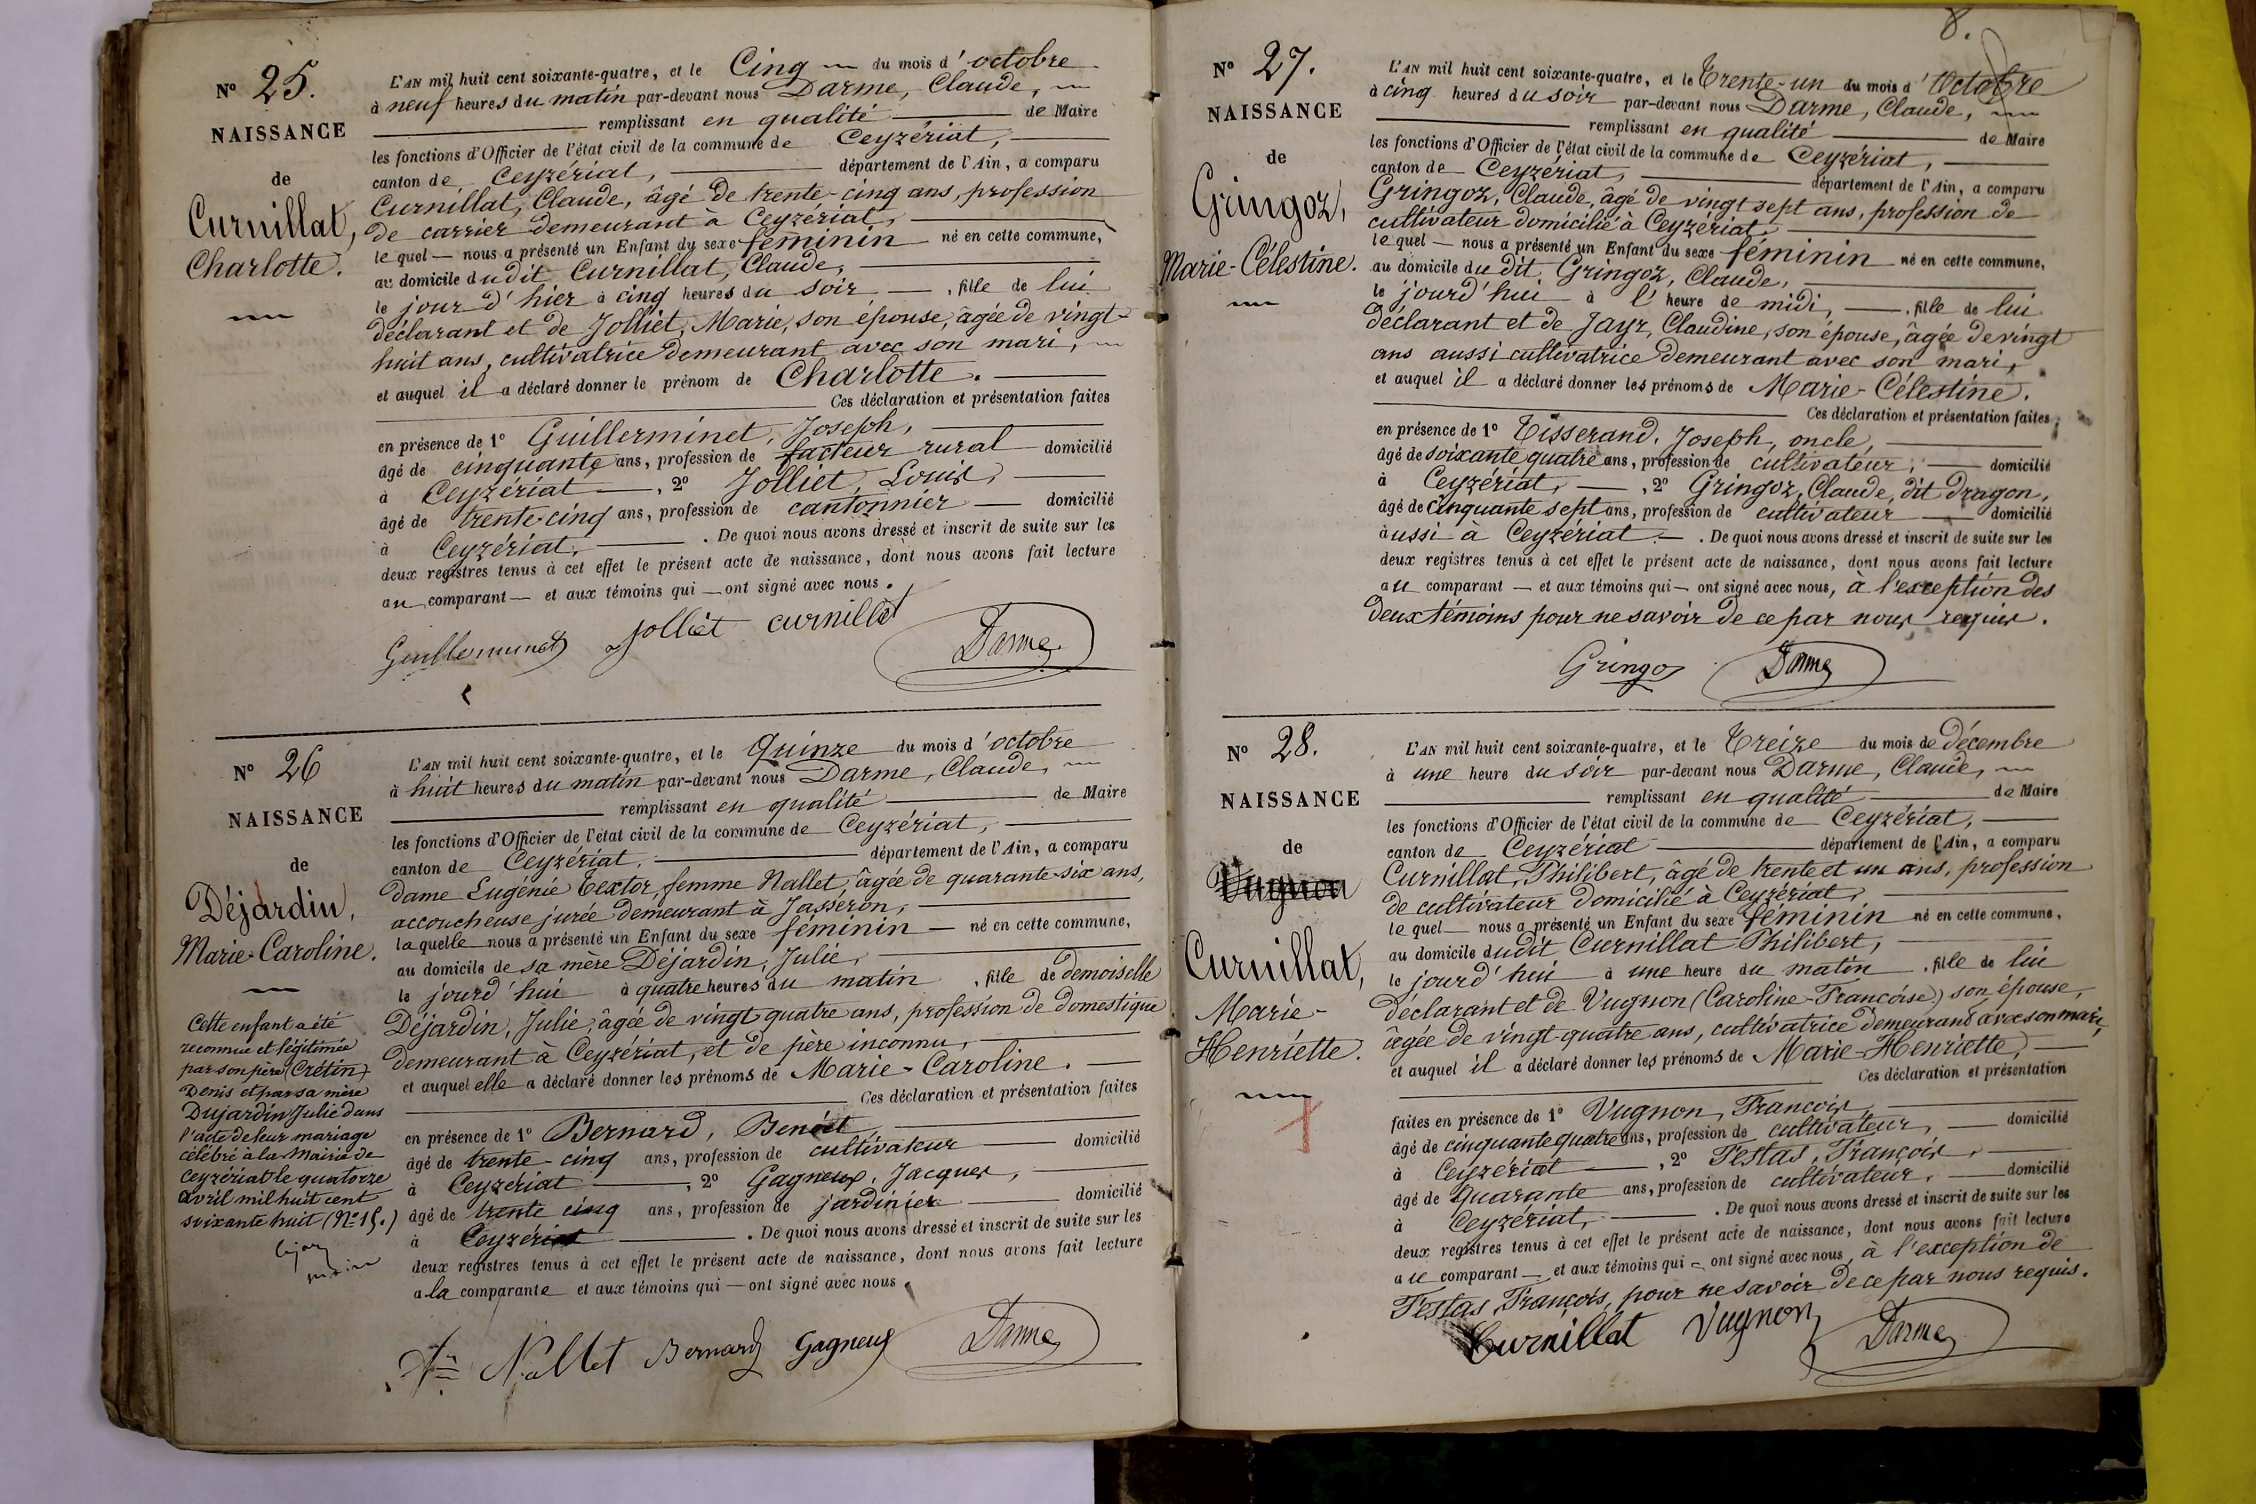 Nº 25.
NAISSANCE
de
Curnillat,
Charlotte.
L'AN mil huit cent soixante-quatre, et le Cinq du mois d'octobre
à neuf heures du matin par-devant nous Darme, Claude,
remplissant en qualité de Maire
les fonctions d'Officier de l'état civil de la commune de Ceyzériat,
canton de Ceyzériat, département de l'Ain, a comparu
Curnillat, Claude, âgé de trente-cinq ans, profession
de carrier demeurant à Ceyzériat,
le quel nous a présenté un Enfant du sexe féminin né en cette commune,
au domicile dudit Curnillat, Claude,
le jour d'hier à cinq heures du soir, fille de lui
déclarant et de Jolliet, Marie, son épouse, âgée de vingt-
huit ans, cultivatrice demeurant avec son mari,
et auquel il a déclaré donner le prénom de Charlotte.
Ces déclaration et présentation faites
en présence de 1º Guillerminet, Joseph,
âgé de cinquante ans, profession de facteur rural domicilié
à Ceyzériat, 2º Jolliet, Louis,
âgé de trente-cinq ans, profession de cantonnier domicilié
à Ceyzériat. De quoi nous avons dressé et inscrit de suite sur les
deux registres tenus à cet effet le présent acte de naissance, dont nous avons fait lecture
au comparant et aux témoins qui ont signé avec nous.
Guilleminet Jolliet Curnillat Darme
Nº 26
NAISSANCE
de
Déjardin,
Marie-Caroline.
Cette enfant a été
reconnue et légitimée
par son père (Crétin)
Denis et par sa mère
Dujardin Julie dans
l'acte de leur mariage
célébré à la Mairie de
Ceyzériat le quatorze
avril mil huit cent
soixante huit (Nº 15.)
L'AN mil huit cent soixante-quatre, et le Quinze du mois d'octobre
à huit heures du matin par-devant nous Darme, Claude,
remplissant en qualité de Maire
les fonctions d'Officier de l'état civil de la commune de Ceyzériat,
canton de Ceyzériat. département de l'Ain, a comparu
dame Eugénie Textor, femme Nallet, âgée de quarante-six ans,
accoucheuse jurée demeurant à Jasseron,
laquelle nous a présenté un Enfant du sexe féminin né en cette commune,
au domicile de sa mère Déjardin, Julie,
le jourd'hui à quatre heures du matin, fille de demoiselle
Déjardin, Julie, âgée de vingt quatre ans, profession de domestique
demeurant à Ceyzériat, et de père inconnu,
et auquel elle a déclaré donner les prénoms de Marie-Caroline.
Ces déclaration et présentation faites
en présence de 1º Bernard, Benoit,
âgé de trente-cinq ans, profession de cultivateur domicilié
à Ceyzériat, 2º Gagneux, Jacques,
âgé de trente cinq ans, profession de jardinier domicilié
à Ceyzériat. De quoi nous avons dressé et inscrit de suite sur les
deux registres tenus à cet effet le présent acte de naissance, dont nous avons fait lecture
a la comparante et aux témoins qui ont signé avec nous.
Nallet Bernard Gagneux Darme
8.
Nº 27.
NAISSANCE
de
Gringoz,
Marie-Célestine.
L'AN mil huit cent soixante-quatre, et le Trente-un du mois d'Octobre
à cinq heures du soir par-devant nous Darme, Claude,
remplissant en qualité de Maire
les fonctions d'Officier de l'état civil de la commune de Ceyzériat,
canton de Ceyzériat, département de l'Ain, a comparu
Gringoz, Claude, âgé de vingt sept ans, profession de
cultivateur domicilié à Ceyzériat,
le quel nous a présenté un Enfant du sexe féminin né en cette commune,
au domicile du dit Gringoz, Claude,
le jourd'hui à l'heure de midi, fille de lui
déclarant et de Jayr, Claudine, son épouse, âgée de vingt
ans aussi cultivatrice demeurant avec son mari,
et auquel il a déclaré donner les prénoms de Marie-Célestine.
Ces déclaration et présentation faites
en présence de 1º Tisserand, Joseph, oncle,
âgé de soixante quatre ans, profession de cultivateur, domicilié
à Ceyzériat, 2º Gringoz, Claude, dit Dragon,
âgé de Cinquante sept ans, profession de cultivateur domicilié
aussi à Ceyzériat. De quoi nous avons dressé et inscrit de suite sur les
deux registres tenus à cet effet le présent acte de naissance, dont nous avons fait lecture
au comparant et aux témoins qui ont signé avec nous, à l'exception des
deux témoins pour ne savoir de ce par nous requis.
Gringoz Darme
Nº 28.
NAISSANCE
de
Vugnon
Curnillat,
Marie-
Henriette.
L'AN mil huit cent soixante-quatre, et le Treize du mois de décembre
à une heure du soir par-devant nous Darme, Claude,
remplissant en qualité de Maire
les fonctions d'Officier de l'état civil de la commune de Ceyzériat,
canton de Ceyzériat département de l'Ain, a comparu
Curnillat, Philibert, âgé de trente et un ans, profession
de cultivateur domicilié à Ceyzériat,
le quel nous a présenté un Enfant du sexe féminin né en cette commune,
au domicile dudit Curnillat Philibert,
le jourd'hui à une heure du matin, fille de lui
déclarant et de Vugnon (Caroline-Françoise) son épouse,
âgée de vingt-quatre ans, cultivatrice demeurant avec son mari,
et auquel il a déclaré donner les prénoms de Marie-Henriette,
Ces déclaration et présentation
faites en présence de 1º Vugnon, François
âgé de cinquante quatre ans, profession de cultivateur, domicilié
à Ceyzériat, 2º Testas, François,
âgé de Quarante ans, profession de cultivateur, domicilié
à Ceyzériat, . De quoi nous avons dressé et inscrit de suite sur les
deux registres tenus à cet effet le présent acte de naissance, dont nous avons fait lecture
au comparant et aux témoins qui ont signé avec nous, à l'exception de
Testas, François, pour ne savoir de ce par nous requis.
Curnillat Vugnon Darme